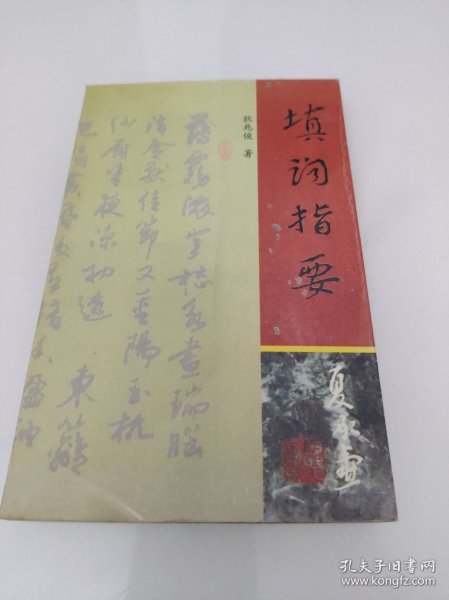 填词指要
狄兆俊 著
薄雾浓云愁永昼瑞脑
消金兽佳节又重阳玉枕
纱厨半夜凉初透
东篱
把酒黄昏后有暗香盈袖
夏承焘
孔夫子旧书网
www.kongfz.com